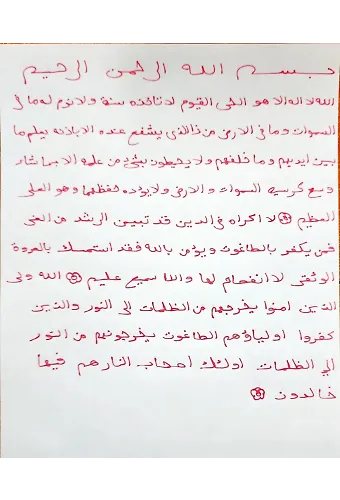 بسم الله الرحمن الرحيم
الله لا اله الا هو الحی القیوم لا تاخذه سنة ولا نوم له ما فی
السموات وما فی الارض من ذالذی یشفع عنده الا باذنه یعلم ما
بین ایدیهم وما خلفهم ولا یحیطون بشیٔ من علمه الا بما شاء
وسع کرسیه السموات و الارض ولا یؤده حفظهما وهو العلی
العظیم لا اکراه فی الدین قد تبین الرشد من الغی
فمن یکفر بالطاغوت ویؤمن بالله فقد استمسك بالعروة
الوثقی لا انفصام لها والله سمیع علیم الله ولی
الذین امنوا یخرجهم من الظلمات الی النور والذین
کفروا اولیاؤهم الطاغوت یخرجونهم من النور
الی الظلمات اولئك اصحاب النار هم فیها
خالدون